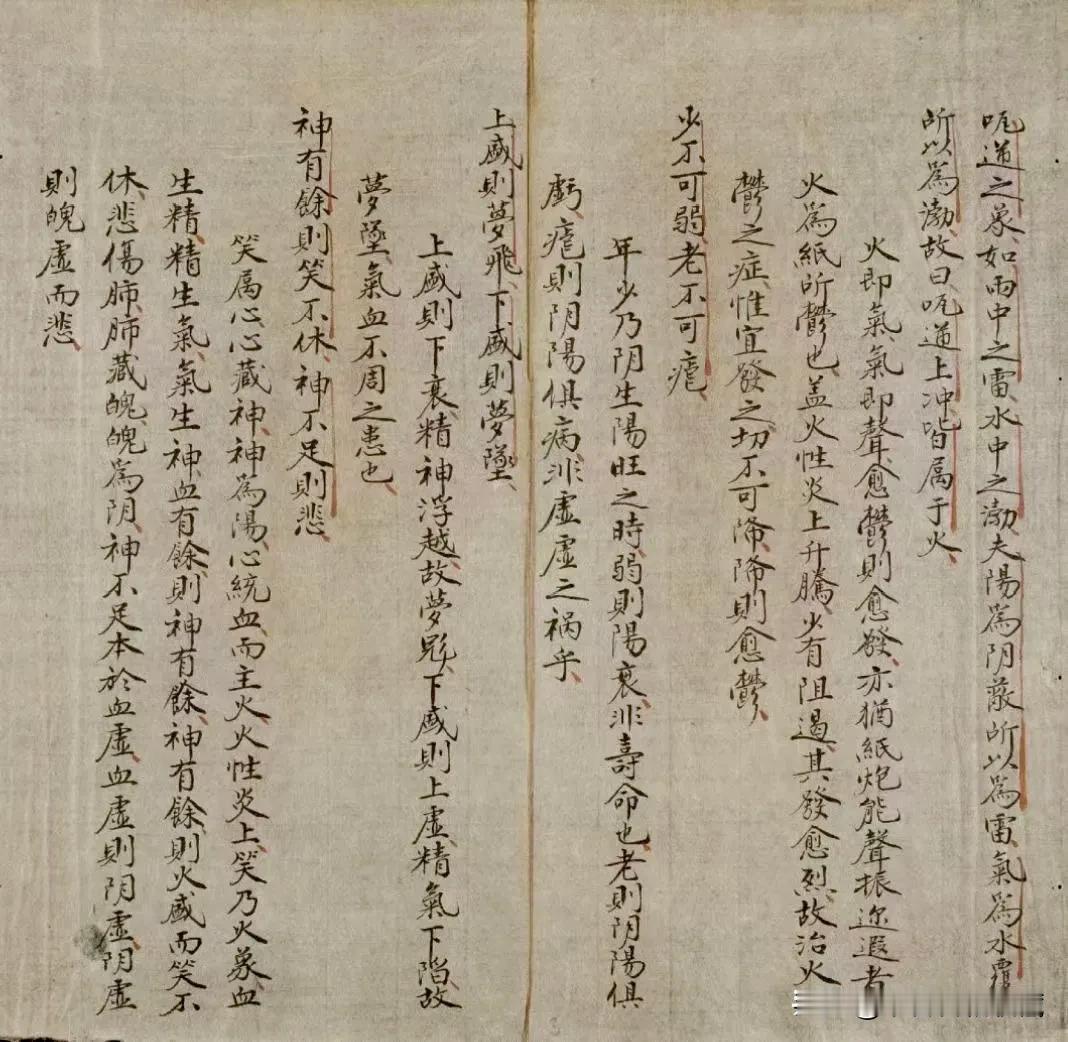 呃逆之象、如雨中之雷、水中之渤、夫陽為阴蔽、所以為雷、氣為水覆、
所以為渤、故曰、呃逆上冲、皆属于火、
火即氣、氣即聲、愈鬱則愈發、亦猶紙炮能聲振迩遐者、
火為紙所鬱也、盖火性炎上升騰、少有阻遏、其發愈烈、故治火
鬱之症、惟宜發之、切不可降、降則愈鬱、
少不可弱、老不可瘧、
年少乃阴生陽旺之時、弱則陽衰、非壽命也、老則阴陽俱
虧、瘧則阴陽俱病、非虛虛之禍乎、
上盛則夢飛、下盛則夢墜、
上盛則下衰、精神浮越、故夢飛、下盛則上虛、精氣下陷、故
夢墜、氣血不周之患也、
神有餘則笑不休、神不足則悲、
笑属心、心藏神、神為陽、心統血而主火、火性炎上、笑乃火象、血
生精、精生氣、氣生神、血有餘則神有餘、神有餘則火盛而笑不
休、悲傷肺、肺藏魄、魄為阴、神不足本於血虛、血虛則阴虛、阴虛
則魄虛而悲、